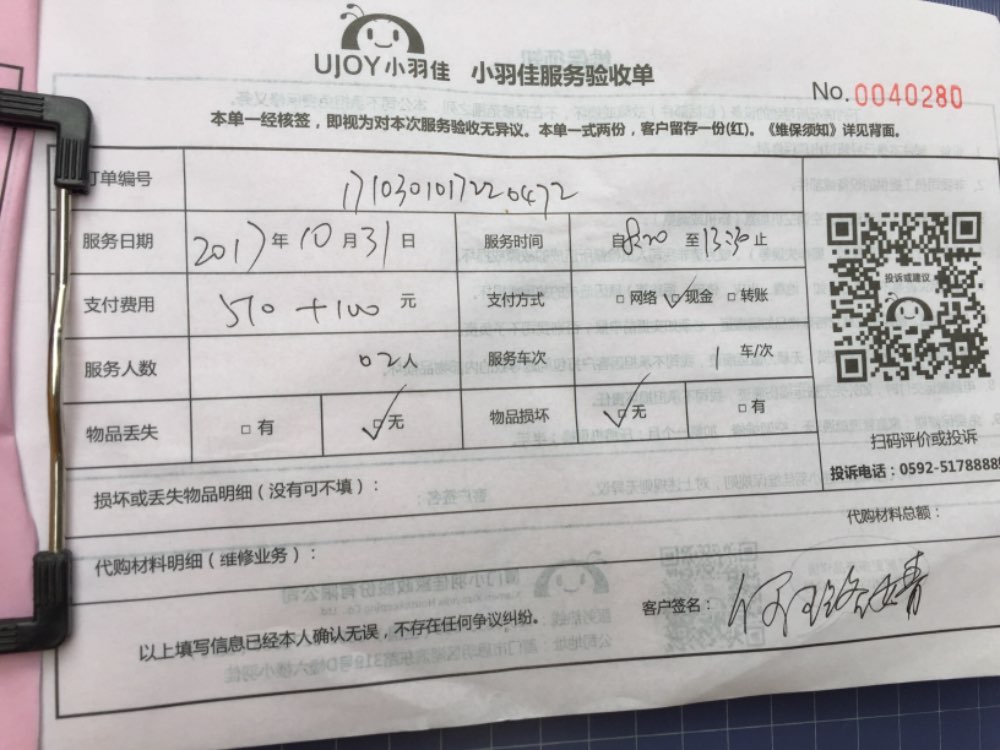 UJOY小羽佳 小羽佳服务验收单
No.0040280
本单一经核签，即视为对本次服务验收无异议。本单一式两份，客户留存一份(红)。《维保须知》详见背面。
订单编号 1710301017220472
服务日期 2017年10月31日 服务时间 自8:20至13:30止
支付费用 570+100元 支付方式 □网络 ☑现金 □转账
服务人数 02人 服务车次 1车/次
物品丢失 □有 ☑无 物品损坏 ☑无 □有
投诉或建议
扫码评价或投诉
投诉电话：0592-5178888
损坏或丢失物品明细（没有可不填）：
代购材料总额：
代购材料明细（维修业务）：
客户签名：
以上填写信息已经本人确认无误，不存在任何争议纠纷。